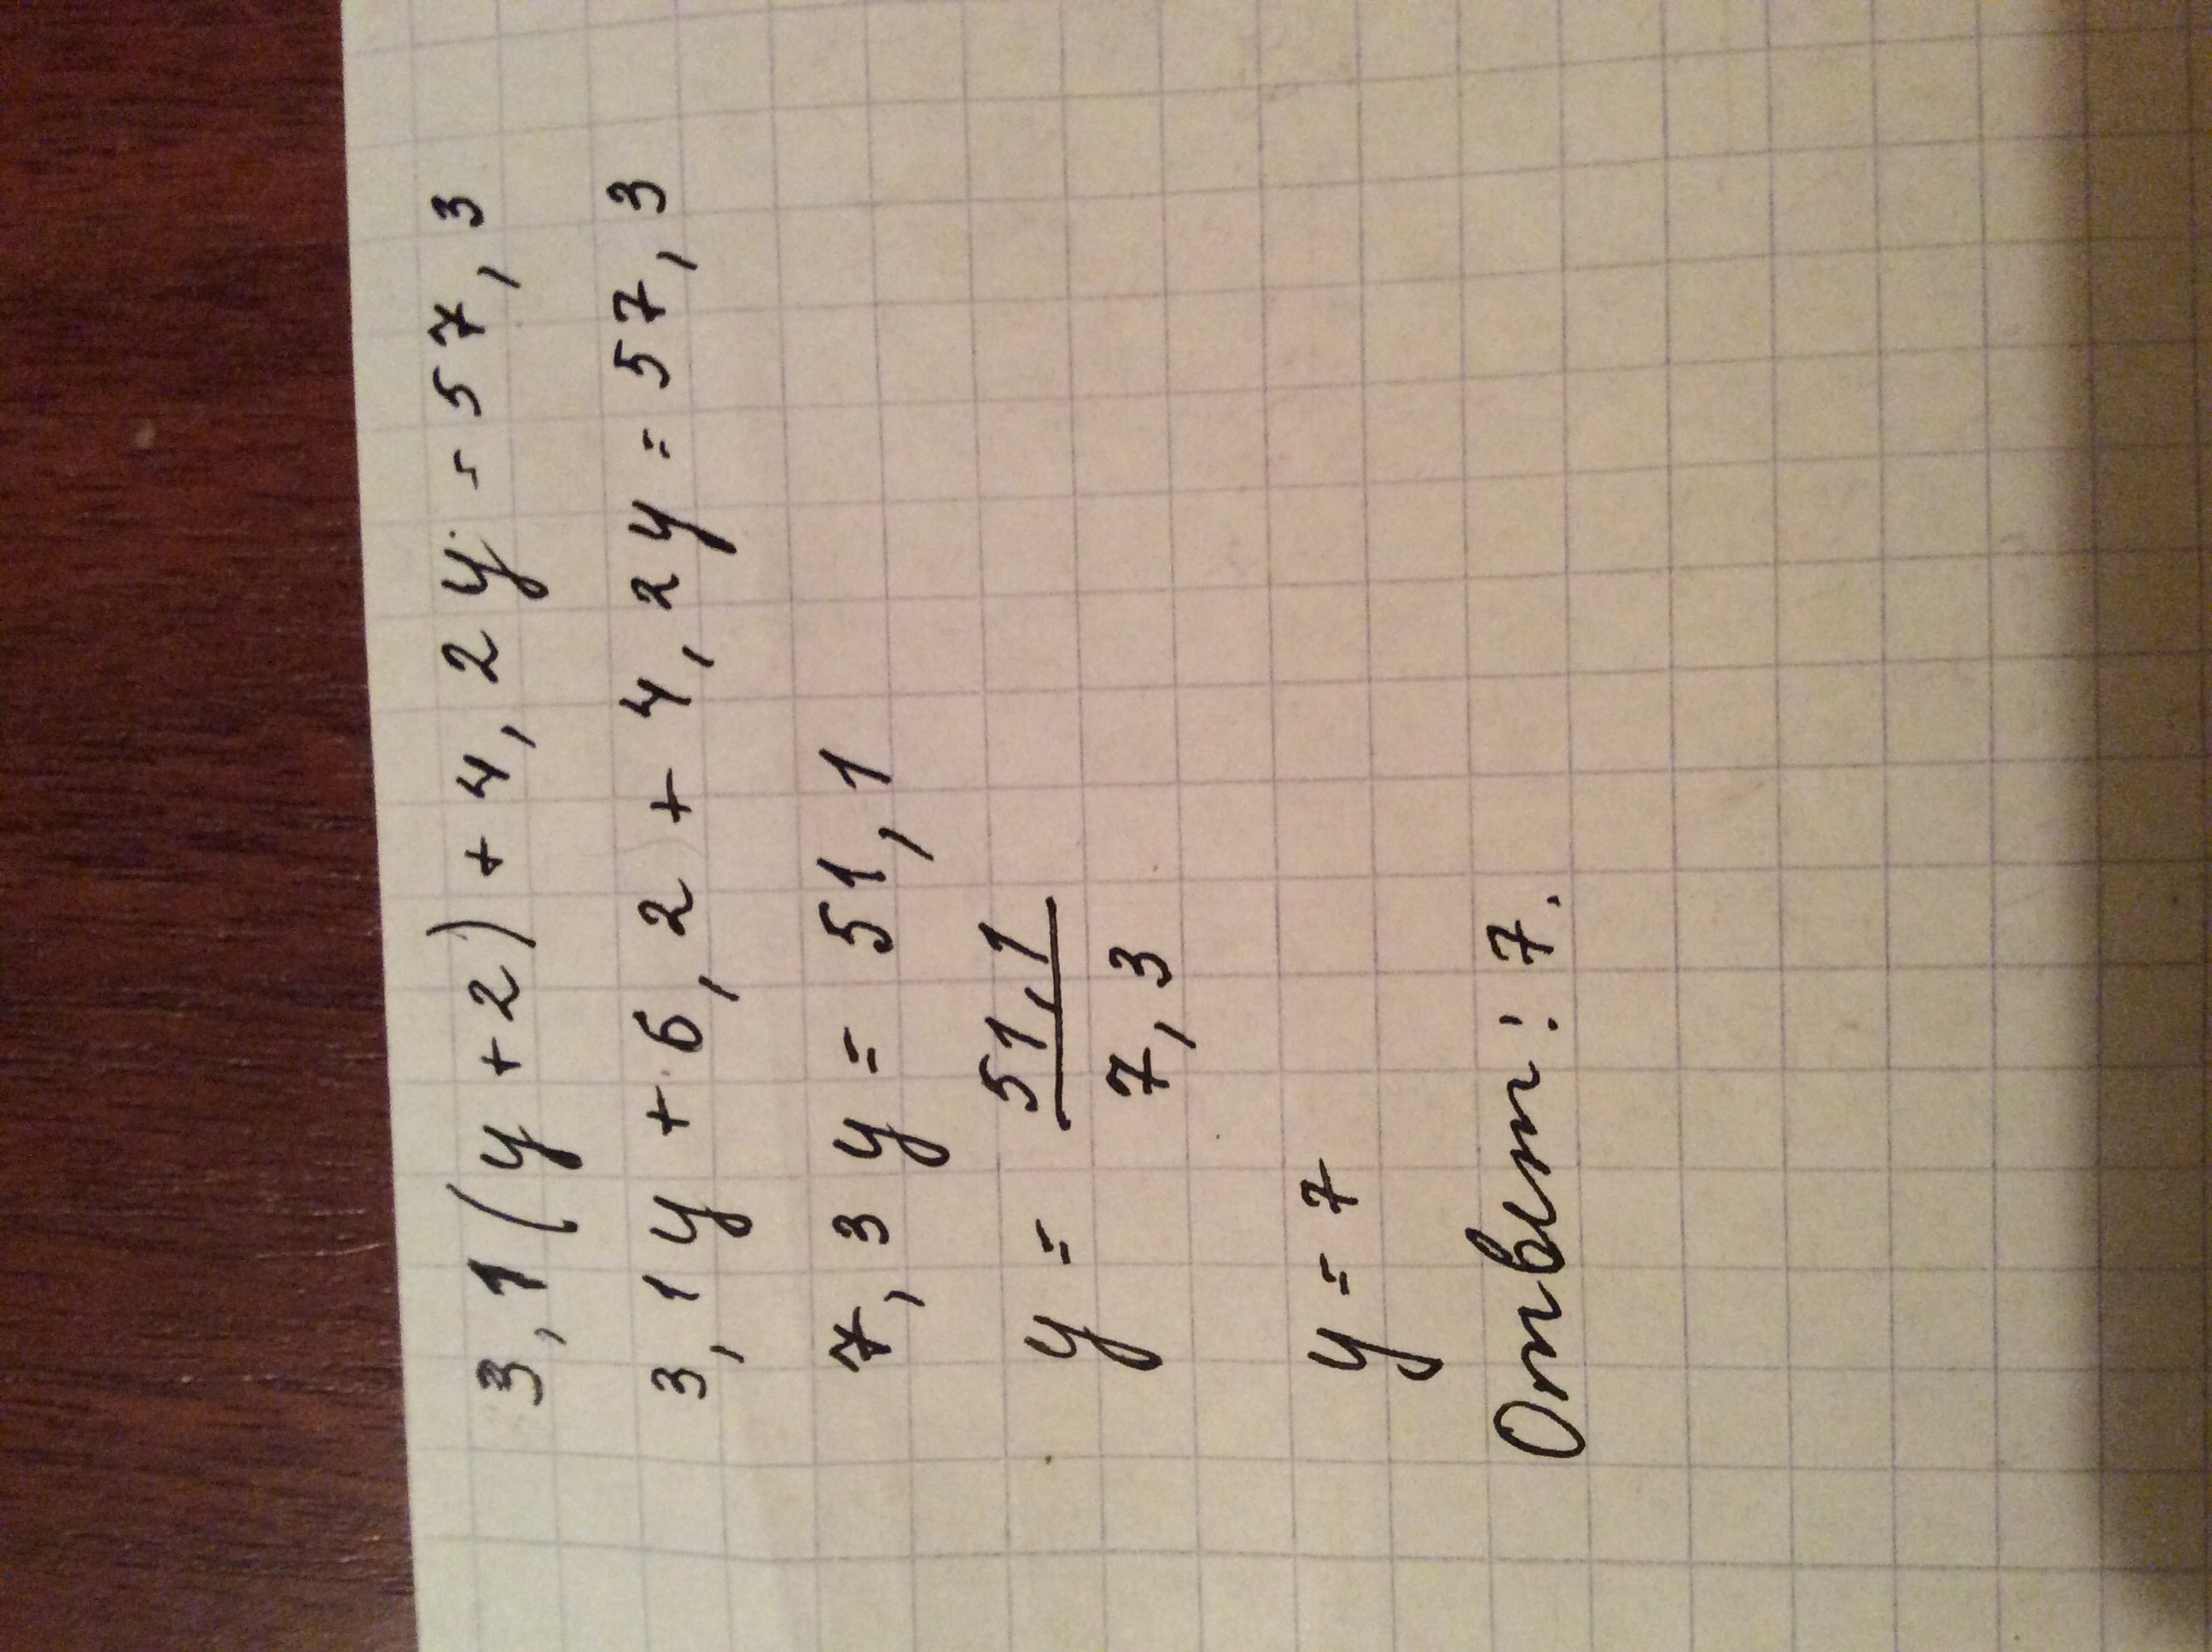 3,1(y+2)+4,2y=57,3
3,1y+6,2+4,2y=57,3
7,3y=51,1
y=51,1/7,3
y=7
Ответ: 7.